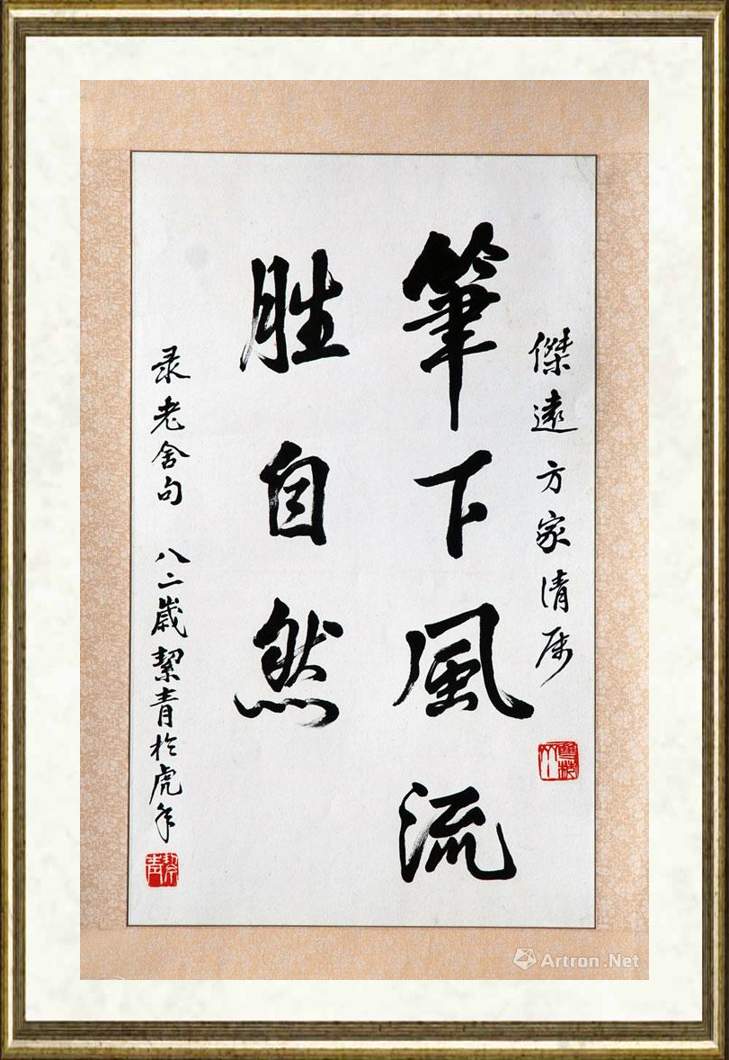 傑遠方家清屬
筆下風流
胜自然
录老舍句 八二歲絜青於虎年
絜青
Artron.Net